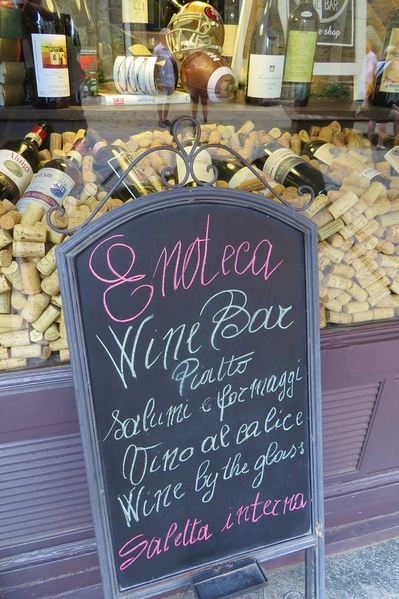 BAR
shop
Enoteca
Wine Bar
Piatto
salumi e formaggi
Vino al calice
Wine by the glass
Saletta interna